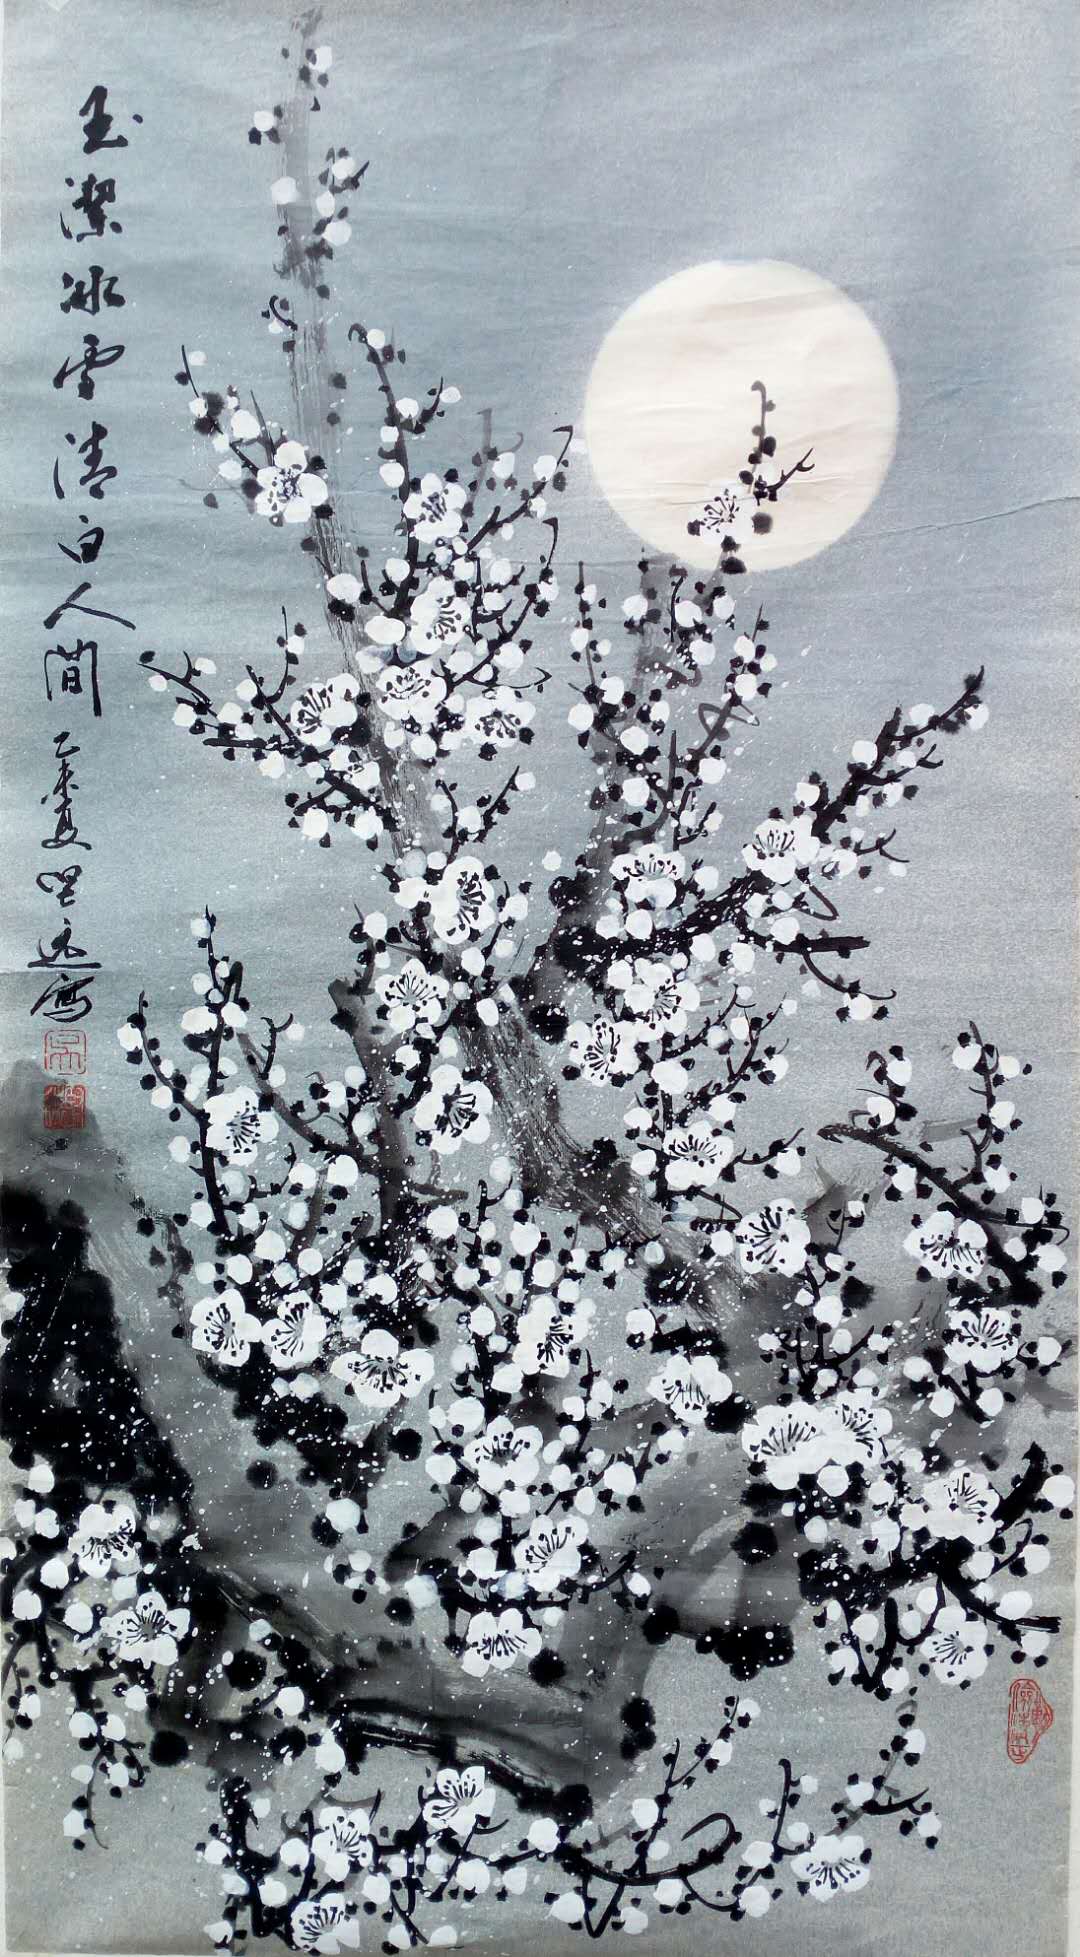 玉潔冰雪清白人間
乙未夏 思远寫